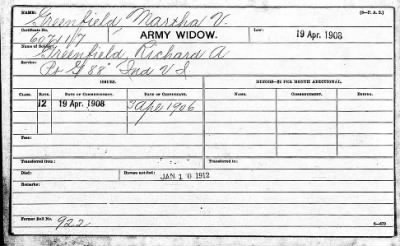 NAME: Greenfield, Martha V. (3-P. A. D.)
Certificate No.
ARMY WIDOW. Law: 19 Apr. 1908
Name of Soldier:
Greenfield, Richard A
Service:
88" Ind V I
ISSUES. MINORS—$2 PER MONTH ADDITIONAL.
CLASS. RATE. DATE OF COMMENCEMENT. DATE OF CERTIFICATE. NAME. COMMENCEMENT. ENDING.
12 19 Apr. 1908
Fees:
Transferred from: Transferred to:
Died: Bureau notified: JAN 10 1912
Remarks:
Former Roll No. 922